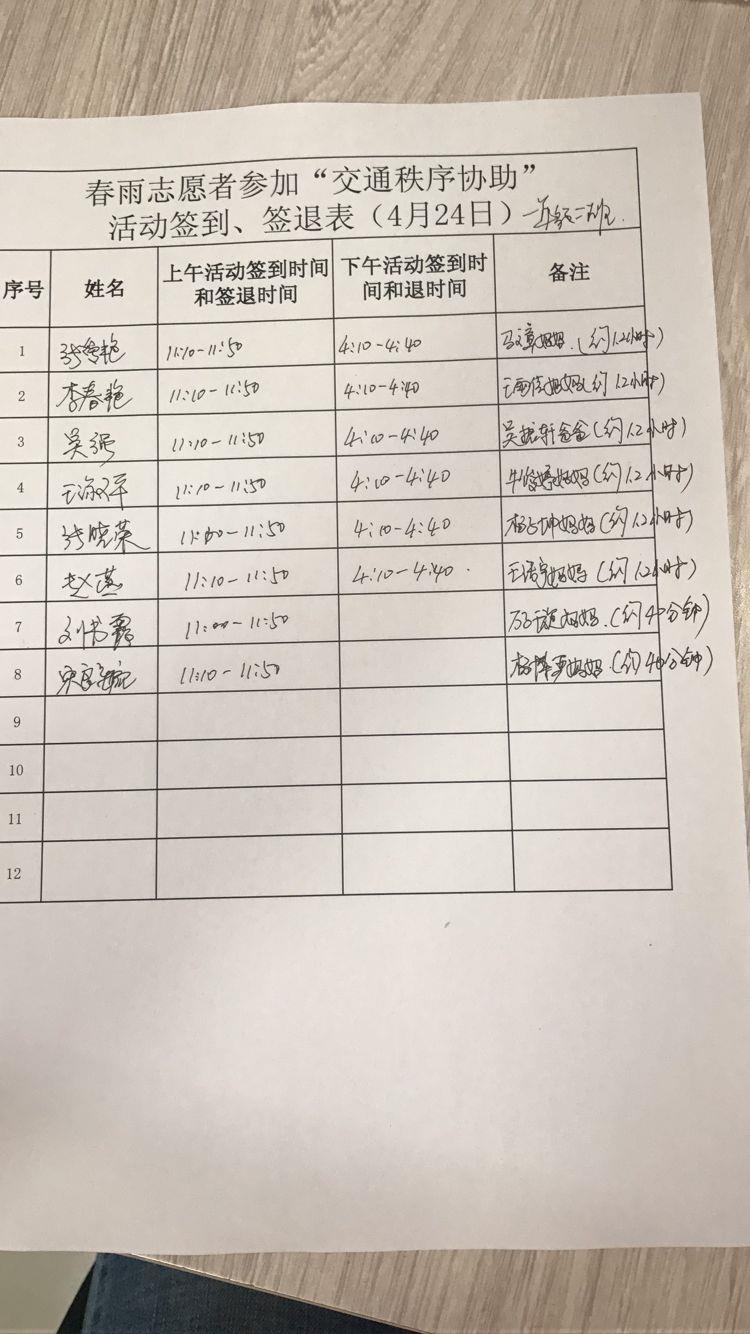 春雨志愿者参加“交通秩序协助”
活动签到、签退表（4月24日） 一年级二班.
序号 姓名 上午活动签到时间和签退时间 下午活动签到时间和退时间 备注
1 11:10-11:50 4:10-4:40 妈妈.(约1.2小时)
2 李春艳 11:10-11:50 4:10-4:40 妈妈(约1.2小时)
3 吴强 11:10-11:50 4:10-4:40 吴 轩爸爸(约1.2小时)
4 11:10-11:50 4:10-4:40 妈妈(约1.2小时)
5 张晓荣 11:00-11:50 4:10-4:40 坤妈妈(约1.2小时)
6 赵 11:10-11:50 4:10-4:40. 妈妈(约1.2小时)
7 刘 11:00-11:50 妈妈.(约40分钟)
8 11:10-11:50 妈妈(约40分钟)
9
10
11
12